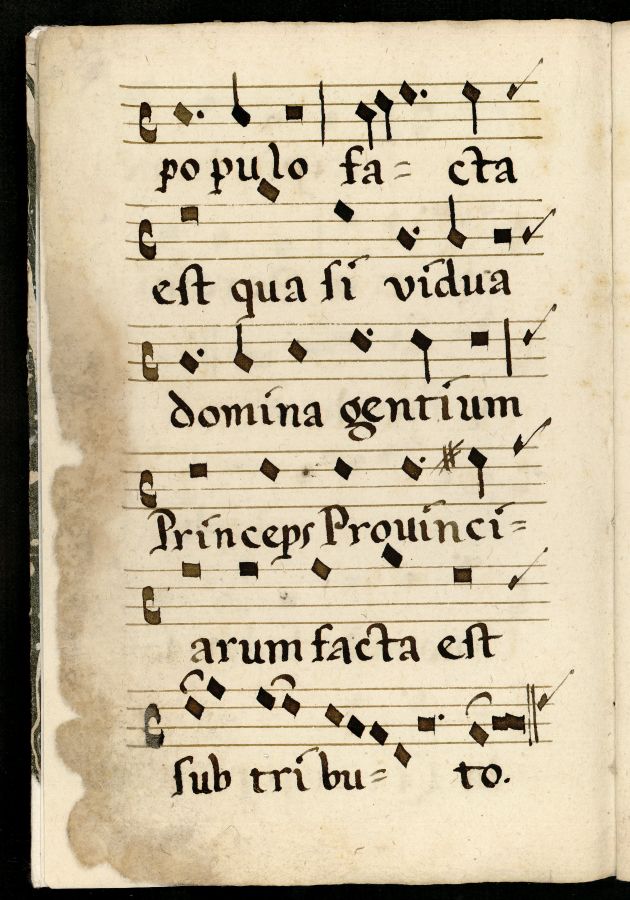 populo fa= cta
est quasi vidua
domina gentium
Princeps Prouinci=
arum facta est
sub tribu= to.